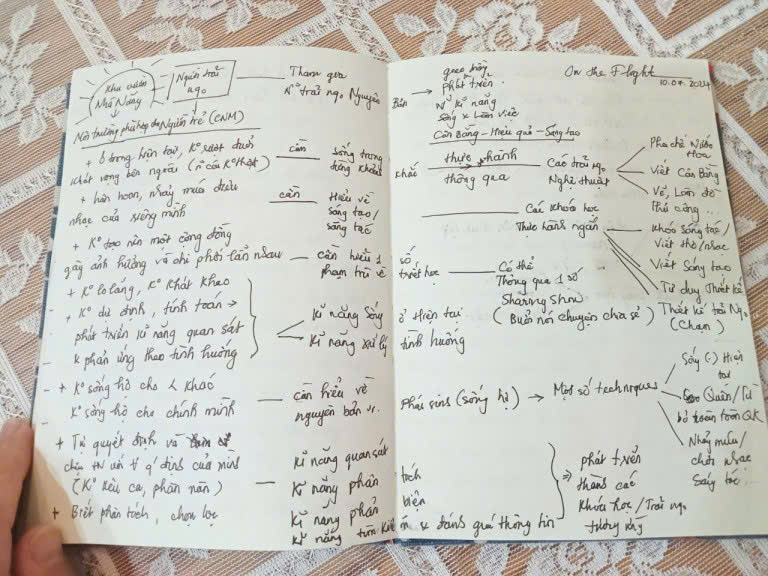 Khu vườn
Nhà Nắng
Người trải
ngọ
Tham gia
K° trải ngọ Nguyên Bản
Môi trường phù hợp cho Người trẻ (CNM)
+ Ở trong hiện tại, K° rượt đuổi
khát vọng bên ngoài
cần
sống trong
đúng khoảnh khắc
+ hân hoan, nhảy múa điệu
nhạc của riêng mình
cần
Hiểu về
sáng tạo/
sáng tác
+ K° tạo nên một cộng đồng
gây ảnh hưởng và chi phối lẫn nhau
cần hiểu 1 số
phạm trù về triết học
+ K° lo lắng, K° khát khao
+ K° dự định, tính toán →
phát triển kĩ năng quan sát
x phản ứng theo tình huống
Kĩ năng Sống ở Hiện tại
Kĩ năng xử lý tình huống
+ K° sống hộ cho khác
K° sống hộ cho chính mình
cần hiểu về
nguyên bản vs. Phái sinh (sống hộ)
+ Tự quyết định và
chịu TN với q/định của mình
(K° kêu ca, phàn nàn)
+ Biết phân tích, chọn lọc
Kĩ năng quan sát
Kĩ năng phân tích
Kĩ năng phản biện
Kĩ năng tìm kiếm x đánh giá thông tin
On the Flight
10.07.2024
→ phát triển
kĩ năng
sống x làm việc
Cân Bằng - Hiệu quả - Sáng tạo
thực hành
thông qua
Các trải ngọ
Nghệ thuật
Pha chế Nước
hoa
Viết Cân Bằng
Vẽ, Làm đồ
thủ công...
Các khoá học
Thực hành ngắn
Khoá sáng tác/
Viết thơ/nhạc
Viết Sáng tạo
Tư duy Thiết kế
Thiết kế trải Ngọ
(Chạm)
Có thể
Thông qua 1 số
Sharing Show
(Buổi nói chuyện chia sẻ)
→ Một số techniques
Sống (-) Hiện
tại
Quên/Từ
bỏ hoàn toàn QK
Nhảy múa/
chơi nhạc
Sáng tác...
⇒ phát triển
thành các
khoá học/Trải ngọ
tương ứng